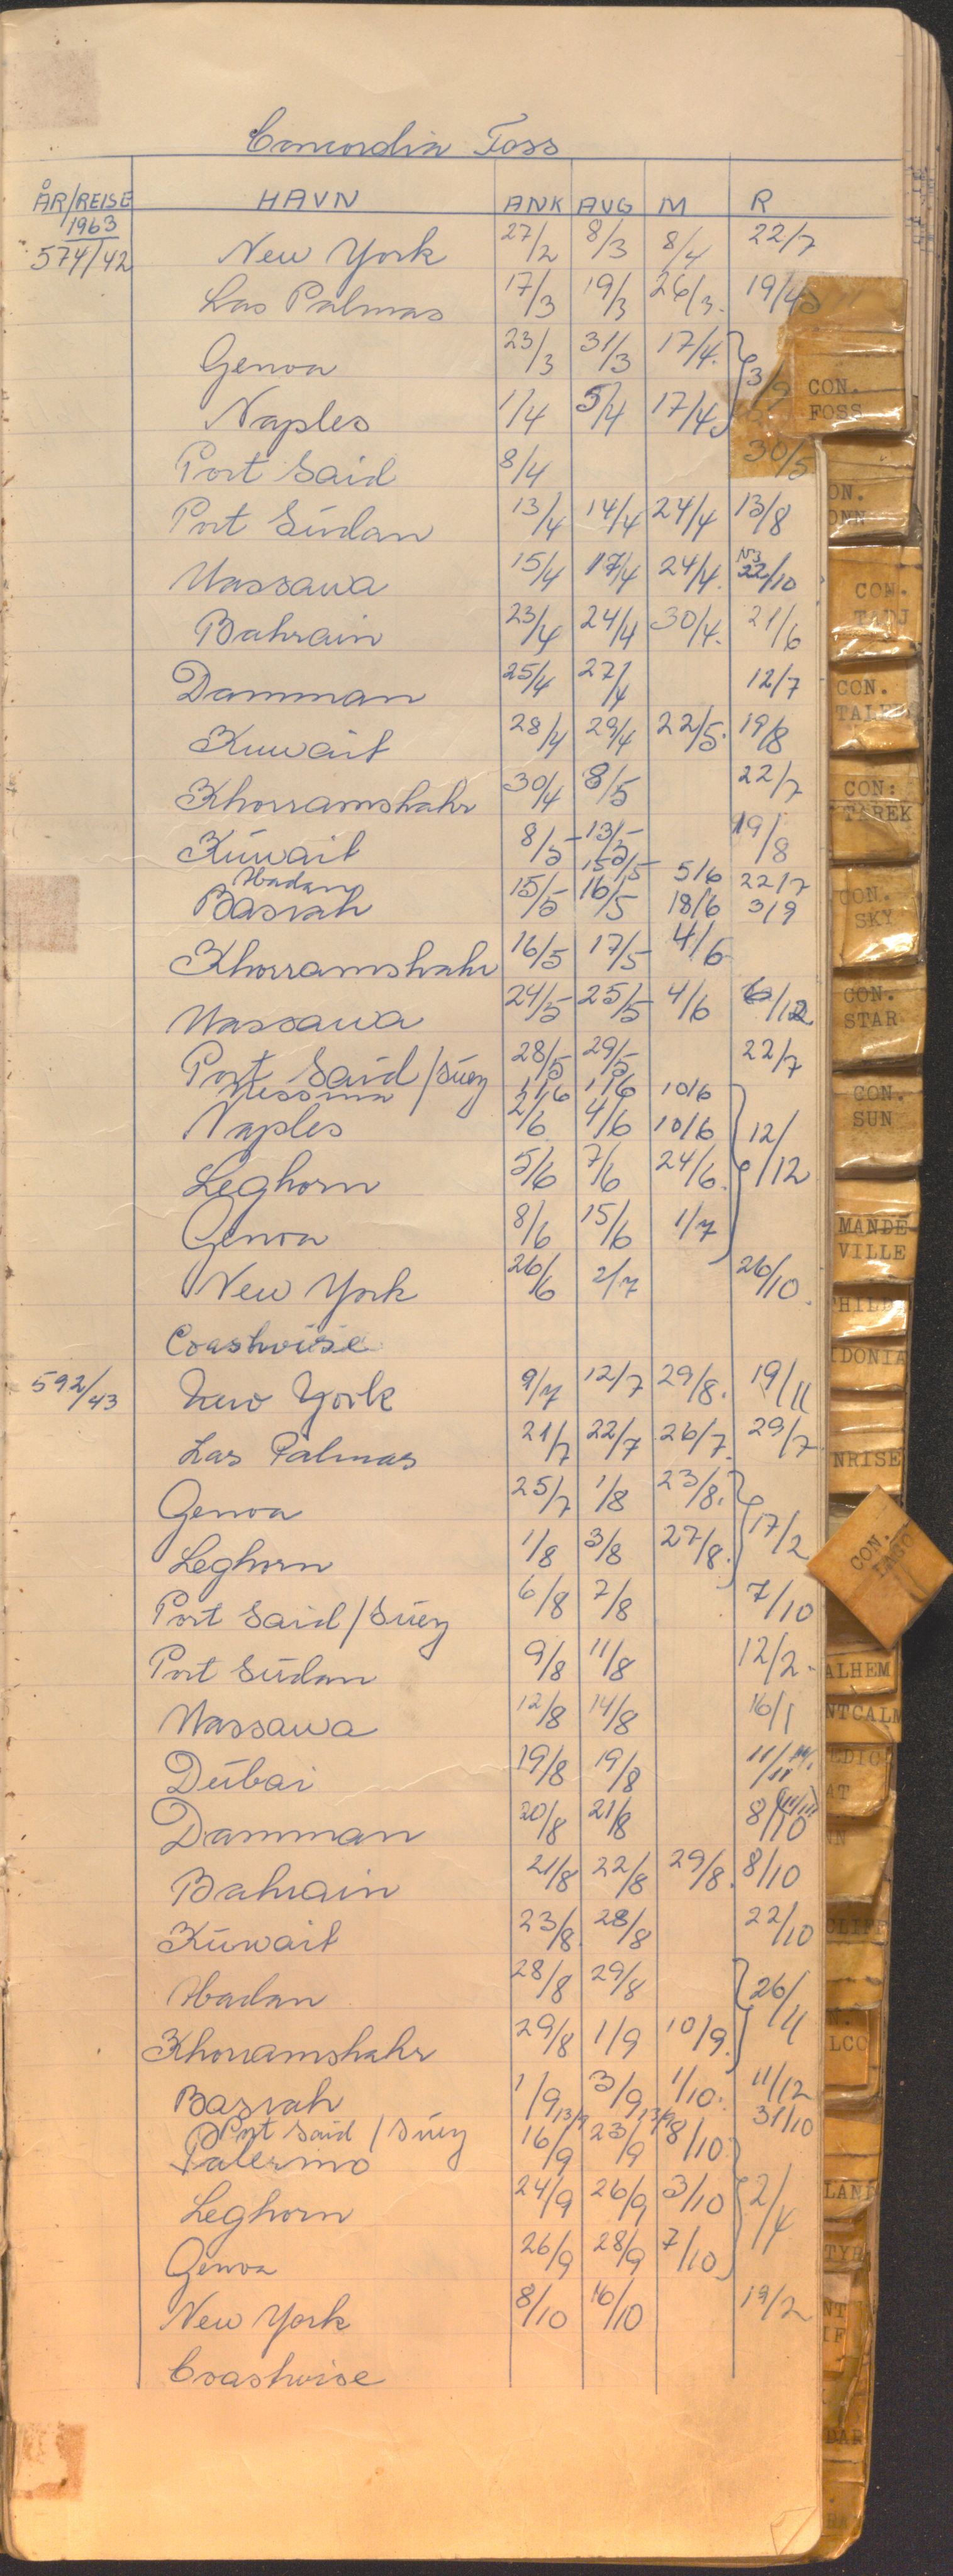 Concordia Foss
ÅR/REISE HAVN ANK AVG M R
1963
574/42 New York 27/2 8/3 8/4 22/7
Las Palmas 17/3 19/3 26/3. 19/4
Genoa 23/3 31/3 17/4.
Naples 1/4 5/4 17/4
Port Said 8/4 30/5
Port Sūdan 13/4 14/4 24/4 13/8
Massawa 15/4 17/4 24/4. 22/10
Bahrain 23/4 24/4 30/4. 21/6
Damman 25/4 27/4 12/7
Kuwait 28/4 29/4 22/5. 19/8
Khorramshahr 30/4 8/5 22/7
Kūwait 8/5 13/5 19/8
Abadan 15/5 5/6 22/7
Basrah 15/5 16/5 18/6 3/9
Khorramshahr 16/5 17/5 4/6
Massawa 24/5 25/5 4/6 /12
Port Said/Sūez 28/5 29/5 22/7
Messina 1/6 1/6 10/6
Naples 2/6 4/6 10/6 12/12
Leghorn 5/6 7/6 24/6.
Genoa 8/6 15/6 1/7
New York 26/6 2/7 26/10.
Coastwise
592/43 New York 9/7 12/7 29/8. 19/11
Las Palmas 21/7 22/7 26/7. 29/7
Genoa 25/7 1/8 23/8.
Leghorn 1/8 3/8 27/8. 17/2
Port Said/Sūez 6/8 7/8 7/10
Port Sūdan 9/8 11/8 12/2
Massawa 12/8 14/8 16/1
Dūbai 19/8 19/8 11/11
Damman 20/8 21/8 8/10
Bahrain 21/8 22/8 29/8. 8/10
Kūwait 23/8 28/8 22/10
Abadan 28/8 29/8 26/11
Khorramshahr 29/8 1/9 10/9.
Basrah 1/9 3/9 1/10. 11/12
Port Said/Sūez 13/9 13/9 31/10
Palermo 16/9 23/9 8/10
Leghorn 24/9 26/9 3/10 2/4
Genoa 26/9 28/9 7/10
New York 8/10 16/10 19/2
Coastwise
CON. FOSS
CON.
CON.
CON:
TAREK
CON.
SKY
CON.
STAR
CON.
SUN
MANDE-
VILLE
CON.
IAGO